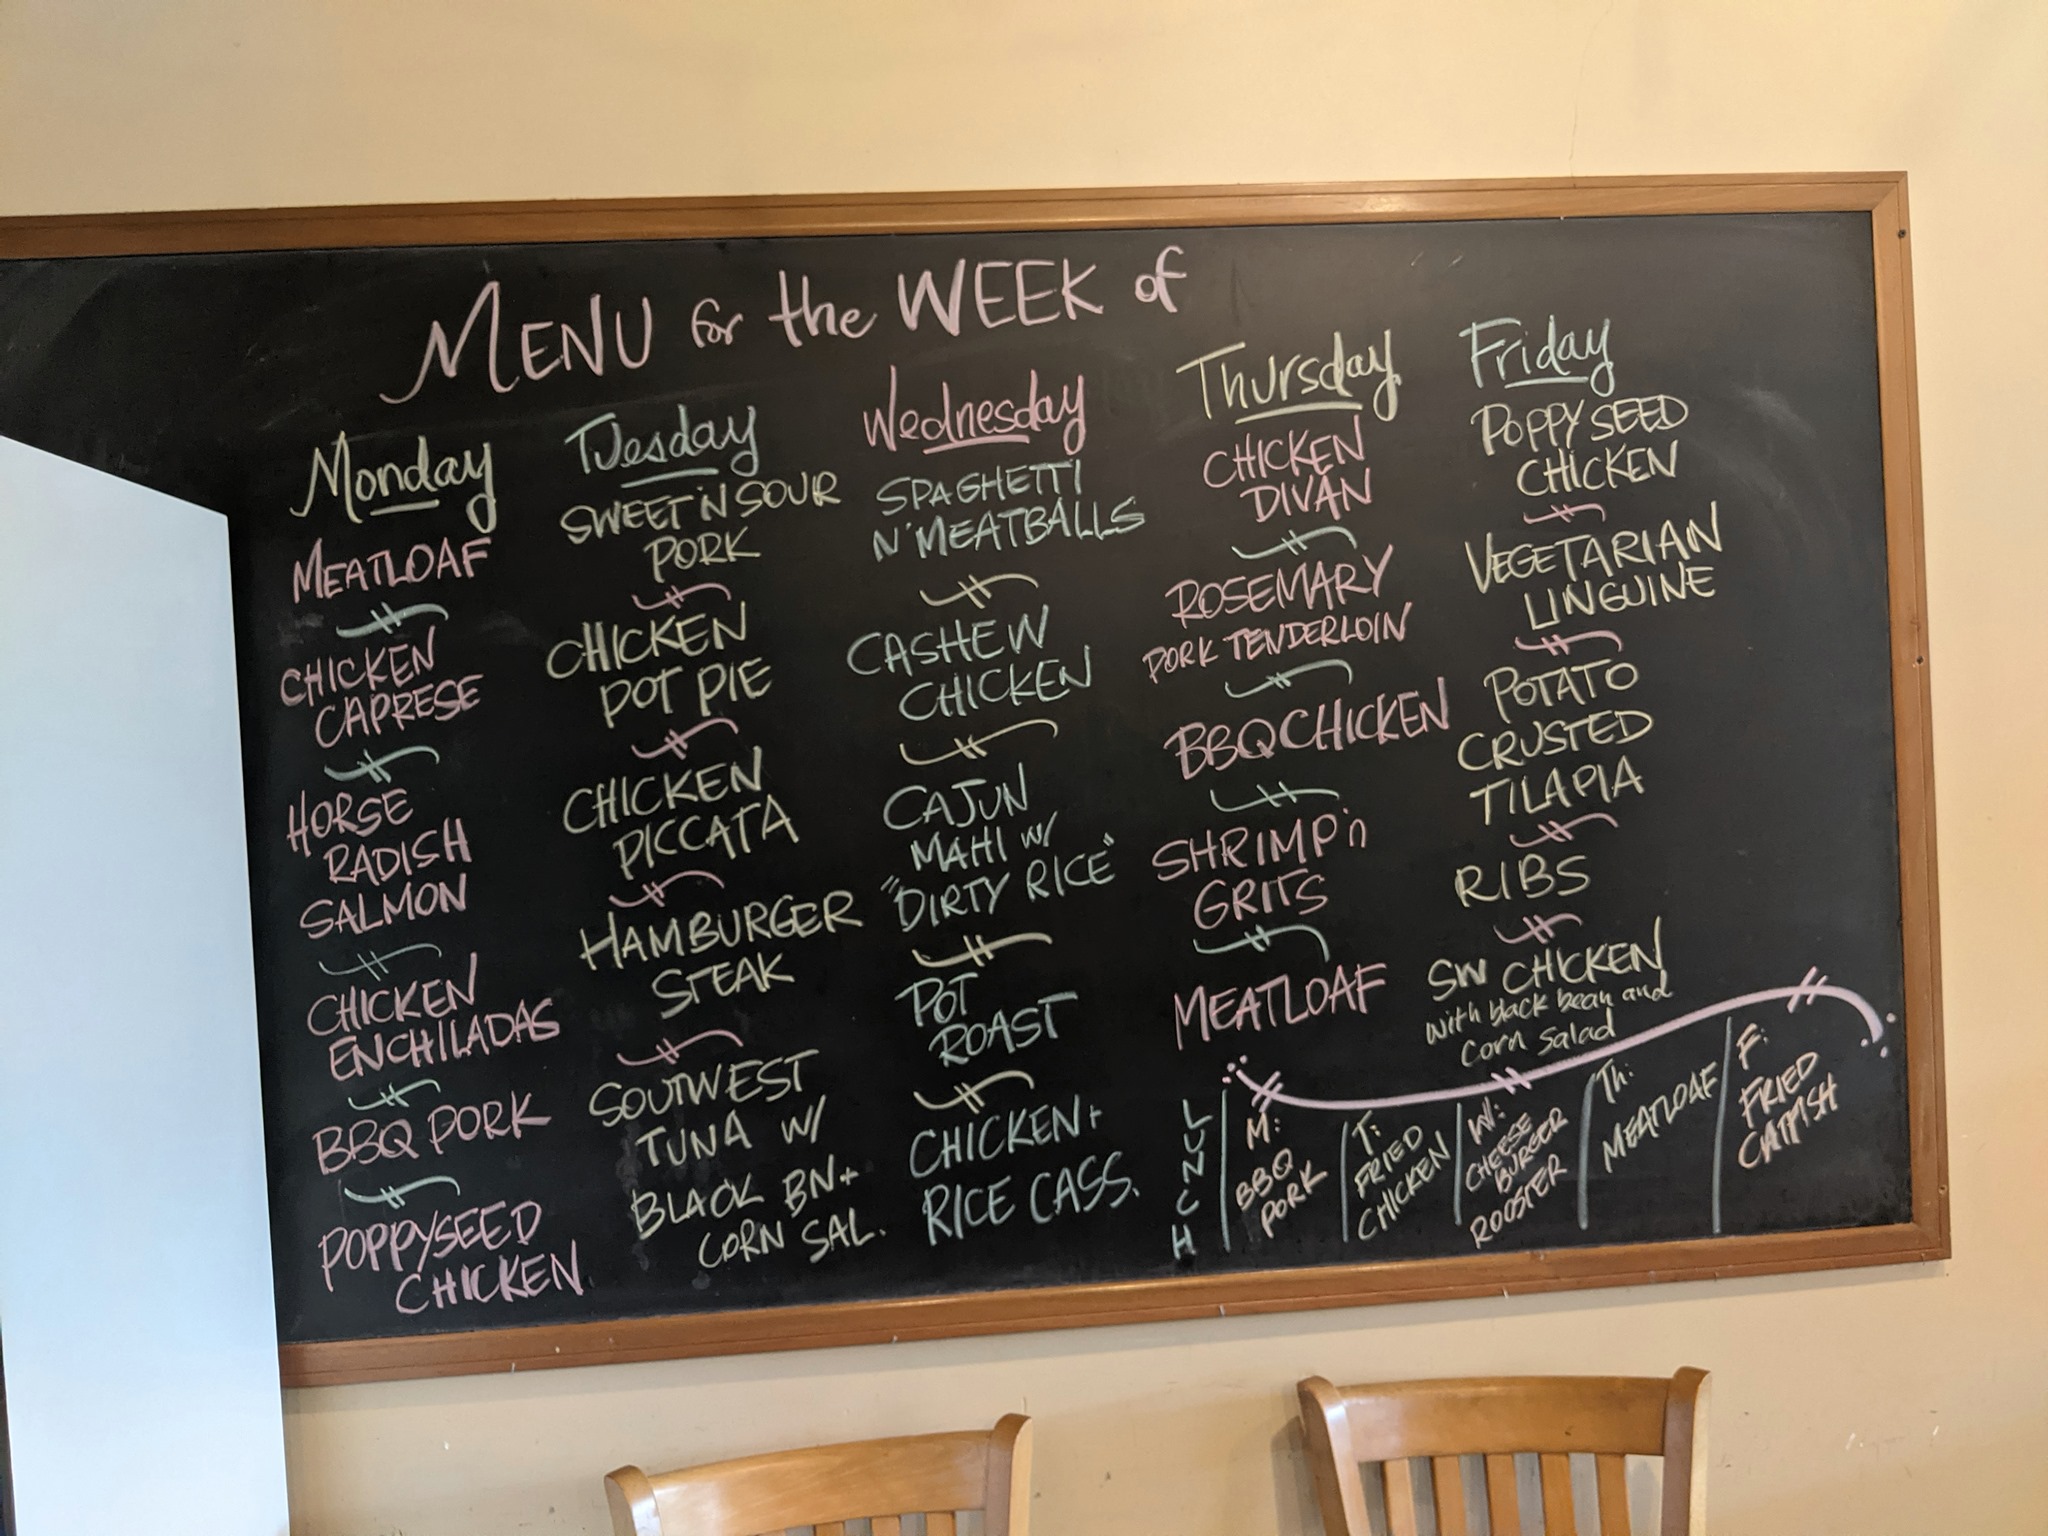 MENU for the WEEK of
Monday
MEATLOAF
CHICKEN
CAPRESE
HORSE
RADISH
SALMON
CHICKEN
ENCHILADAS
BBQ PORK
POPPYSEED
CHICKEN
Tuesday
SWEET 'N SOUR
PORK
CHICKEN
POT PIE
CHICKEN
PICCATA
HAMBURGER
STEAK
SOUTWEST
TUNA W/
BLACK BN+
CORN SAL.
Wednesday
SPAGHETTI
N' MEATBALLS
CASHEW
CHICKEN
CAJUN
MAHI W/
"DIRTY RICE"
POT
ROAST
CHICKEN +
RICE CASS.
Thursday
CHICKEN
DIVAN
ROSEMARY
PORK TENDERLOIN
BBQ CHICKEN
SHRIMP 'n
GRITS
MEATLOAF
Friday
POPPY SEED
CHICKEN
VEGETARIAN
LINGUINE
POTATO
CRUSTED
TILAPIA
RIBS
SW CHICKEN
with black bean and
corn salad
LUNCH
M:
BBQ
PORK
T:
FRIED
CHICKEN
W:
CHEESE
BURGER
ROOSTER
Th:
MEATLOAF
F:
FRIED
CATFISH